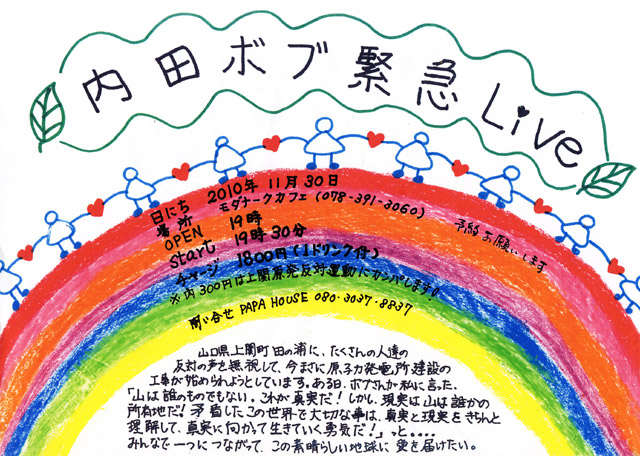 内田ボブ緊急Live
日にち 2010年11月30日
場所 モダナークカフェ(078-391-3060)
予約お願いします
OPEN 19時
Start 19時30分
チャージ 1800円(1ドリンク付)
※内300円は上関原発反対運動にカンパします!
問い合せ PAPA HOUSE 080-3037-8837
山口県上関町田の浦に、たくさんの人達の
反対の声を無視して、今まさに原子力発電所建設の
工事が始められようとしています。ある日、ボブさんが私に言った、
「山は誰のものでもない。これが真実だ!しかし、現実は山は誰かの
所有地だ!矛盾したこの世界で大切な事は、真実と現実をきちんと
理解して、真実に向かって生きていく勇気だ!」っと。。。。
みんなで一つにつながって、この素晴らしい地球に愛を届けたい。